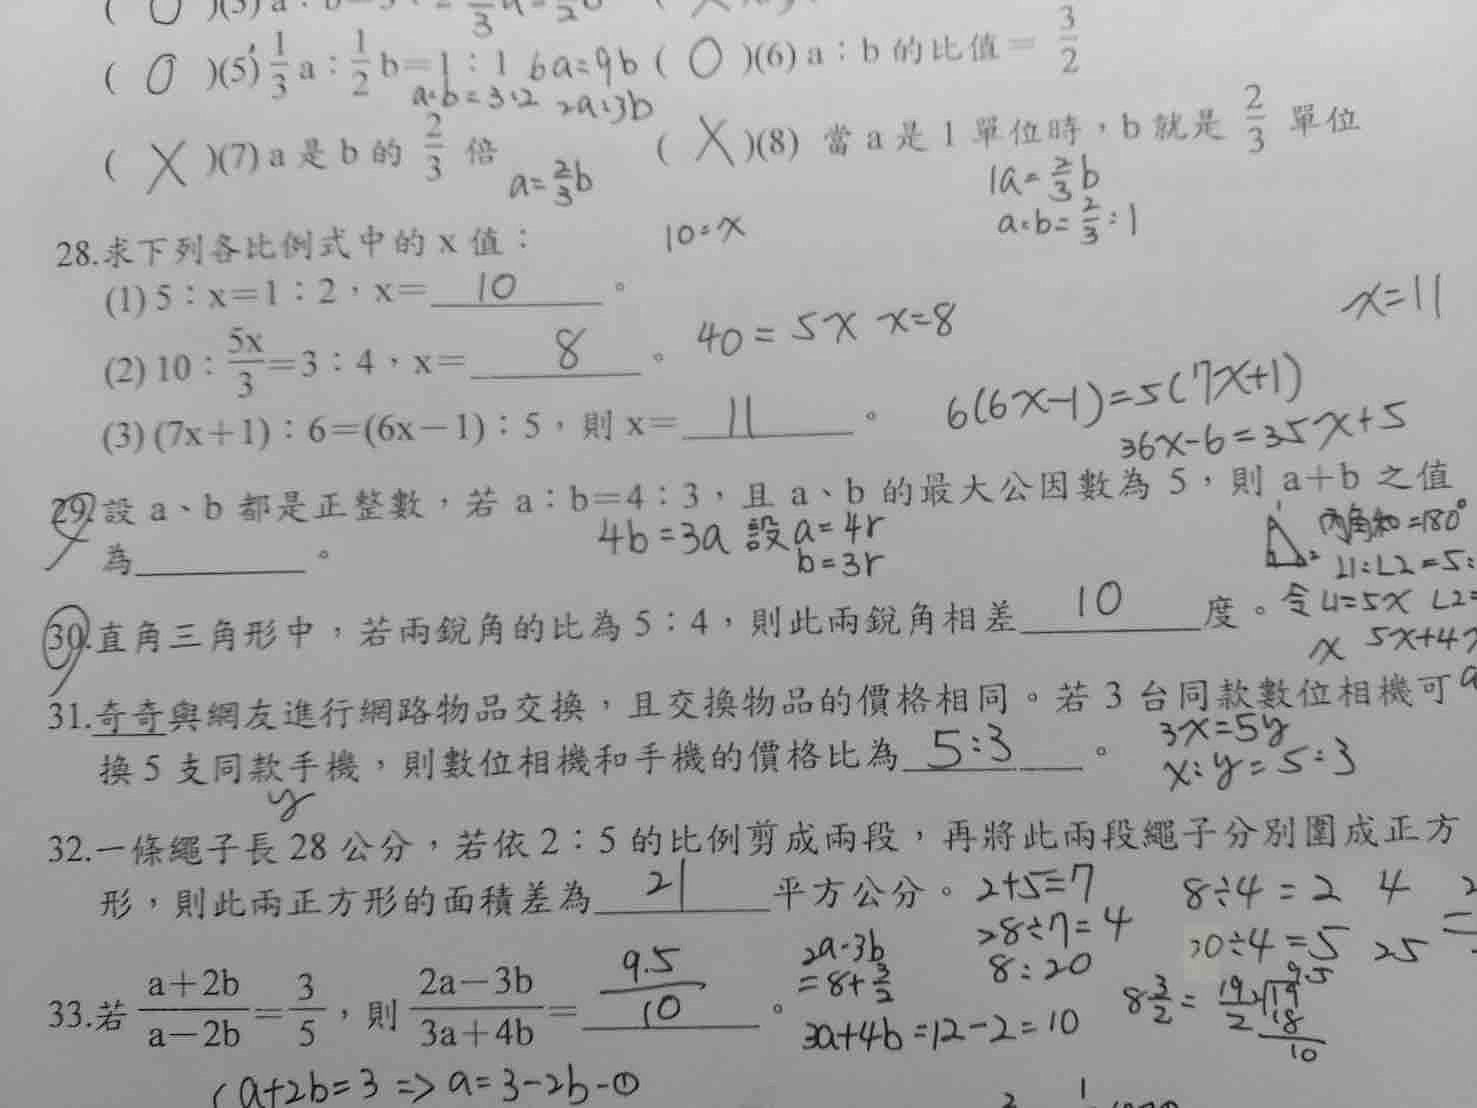 ( O )(5) 1/3 a：1/2 b=1：1 6a=9b ( O )(6) a：b 的比值＝ 3/2
a:b=3:2 2a:3b
( X )(7) a 是 b 的 2/3 倍 ( X )(8) 當 a 是 1 單位時，b 就是 2/3 單位
a=2/3b 1a=2/3b
a:b=2/3:1
28.求下列各比例式中的 x 值： 10=x
(1) 5：x=1：2，x= 10 。 x=11
(2) 10：5x/3=3：4，x= 8 。 40=5x x=8
(3) (7x+1)：6=(6x-1)：5，則 x= 11 。 6(6x-1)=5(7x+1)
36x-6=35x+5
29.設 a、b 都是正整數，若 a：b=4：3，且 a、b 的最大公因數為 5，則 a+b 之值
4b=3a 設a=4r 內角和=180°
為 。 b=3r ∠1:∠2=5:
30.直角三角形中，若兩銳角的比為 5：4，則此兩銳角相差 10 度。 令∠1=5x ∠2=
x 5x+4x
31.奇奇與網友進行網路物品交換，且交換物品的價格相同。若 3 台同款數位相機可
3x=5y
換 5 支同款手機，則數位相機和手機的價格比為 5:3 。 x:y=5:3
y
32.一條繩子長 28 公分，若依 2：5 的比例剪成兩段，再將此兩段繩子分別圍成正方
形，則此兩正方形的面積差為 21 平方公分。 2+5=7 8÷4=2 4
28÷7=4 20÷4=5 25
8:20
33.若 a+2b/a-2b=3/5，則 2a-3b/3a+4b= 9.5/10 。
2a-3b
=8+3/2 8 3/2=19/2 2 19 9.5
18
10
3a+4b=12-2=10
a+2b=3 => a=3-2b-①